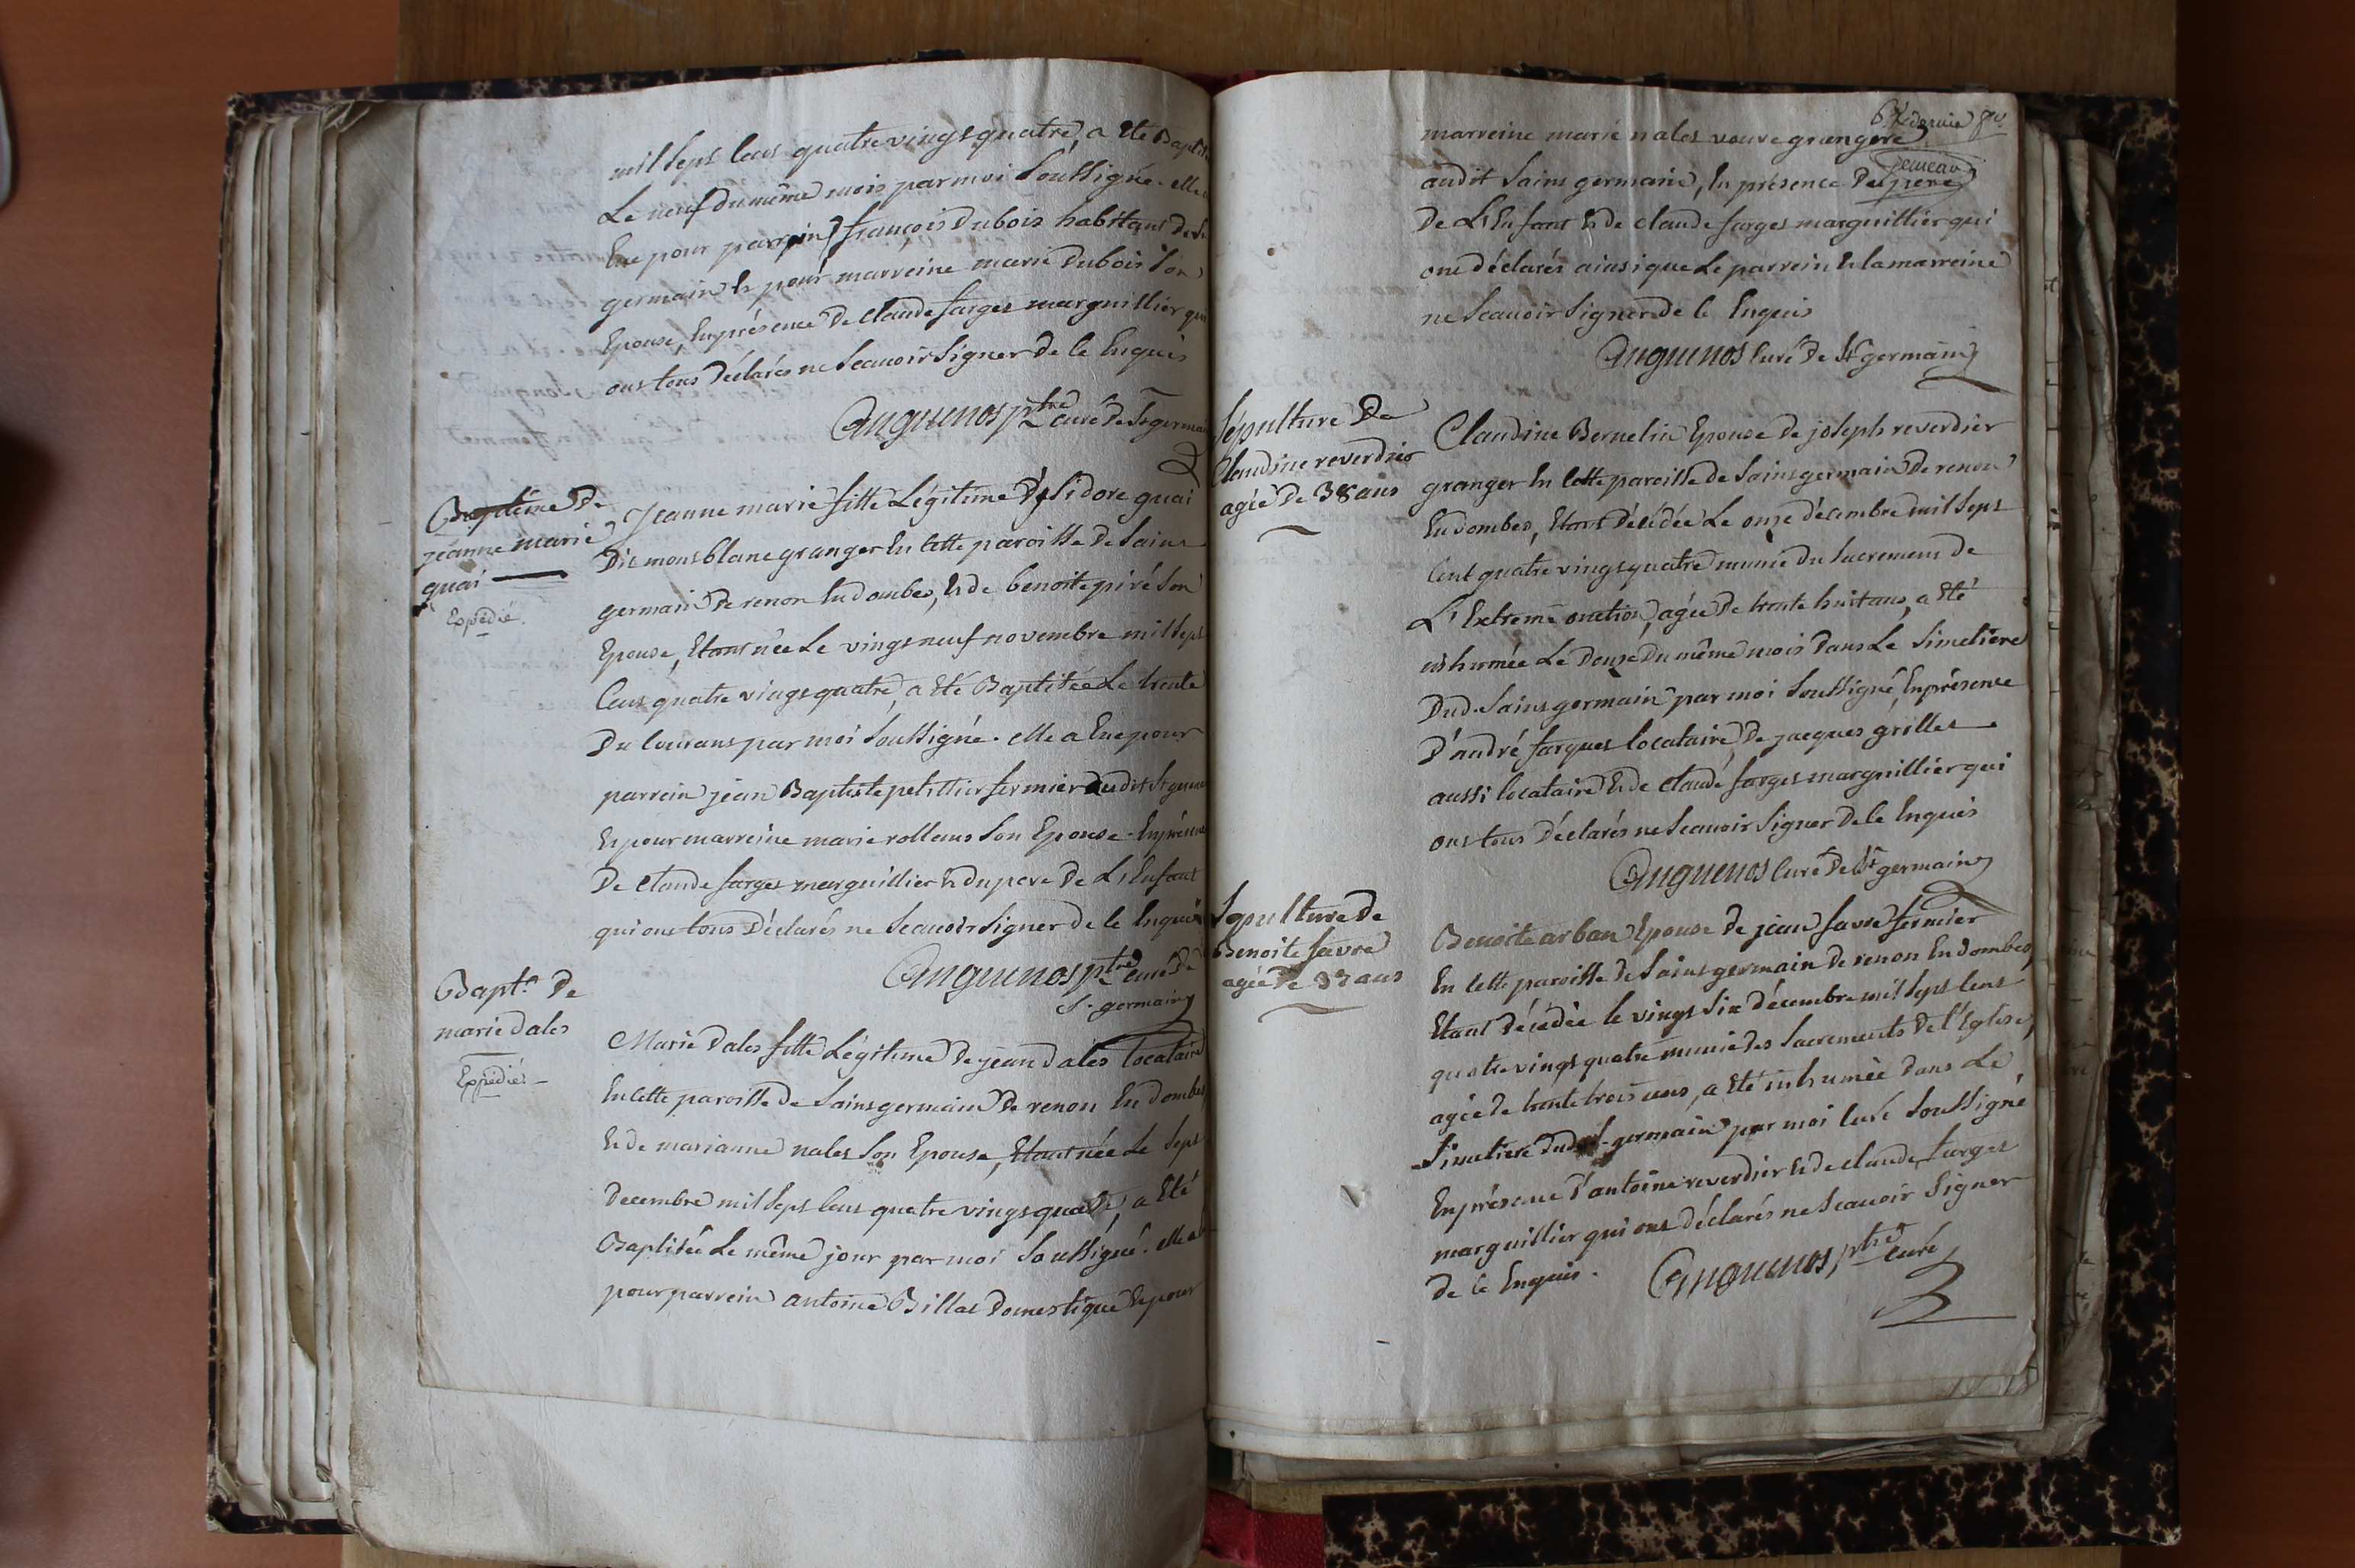 mil sept cens quatre vingt quatre, a été Baptisé
Le neuf du même mois par moi soussigné. elle a
Eue pour parrein françois Dubois habitant de St
germain & pour marreine marie Dubois son
Epouse, En présence de Claude farges marguillier qui
ont tous déclarés ne sçauoir signer de ce Enquis
Anguenos ptre curé de St germain
Baptême de
jeanne marie
quai
Expédié.
Jeanne marie fille Légitime d'isidore quai
Dit mont blanc granger En cette paroisse de Saint
germain de renon En dombes, & de benoite piré son
Epouse, Etant née Le vingt neuf novembre mil sept
Cens quatre vingt quatre, a été Baptisée Le trente
Du courant par moi soussigné. elle a Eue pour
parrein jean Baptiste petitier fermier audit St germain
Et pour marreine marie rollens son Epouse. En présence
De Claude farges marguillier & du pere de L'Enfant
qui ont tous déclarés ne sçauoir signer de ce Enquis
Anguenos ptre curé de
St. germain
Bapte. de
marie dales
Expédié.
Marie dales fille Légitime de jean dales locataire
En cette paroisse de Saint germain de renon En dombes
& de marianne nales son Epouse, Etant née Le sept
decembre mil sept cens quatre vingt quatre, a été
Baptisée Le même jour par moi soussigné. elle a
pour parrein antoine Billat domestique & pour
dernier
marreine marie nales veuve grangere
jemeau
audit Saint germain, En présence du pere
De L'Enfant & de claude farges marguillier qui
ont déclarés ainsi que Le parrein & la marreine
ne sçauoir signer de ce Enquis
Anguenos Curé de St germain
Sépulture de
Claudine reverdier
agée de 38 ans
Claudine Bernelin Epouse de joseph reverdier
granger En cette paroisse de Saint germain de renon
En dombes, Etant décédée Le onze décembre mil sept
Cent quatre vingt quatre munie du Sacrement de
L'Extreme onction, agée de trente huit ans, a été
inhumée Le douze du même mois dans Le Simetiere
Dud. Saint germain par moi soussigné, En présence
D'andré farques locataire, de jacques grilles
aussi locataire & de Claude farges marguillier qui
ont tous déclarés ne sçauoir signer de ce Enquis
Anguenos Curé de St germain
Sépulture de
Benoite favre
agée de 33 ans
Benoite arban Epouse de jean favre fermier
En cette paroisse de Saint germain de renon En dombes,
Etant décédée le vingt six décembre mil sept cens
quatre vingt quatre munie des Sacrements de l'Eglise,
agée de trente trois ans, a été inhumée dans Le
Simetiere dud. St. germain par moi curé soussigné
En présence d'antoine reverdier & de claude farges
marguillier qui ont déclarés ne sçauoir signer
de ce Enquis. Anguenos ptre curé